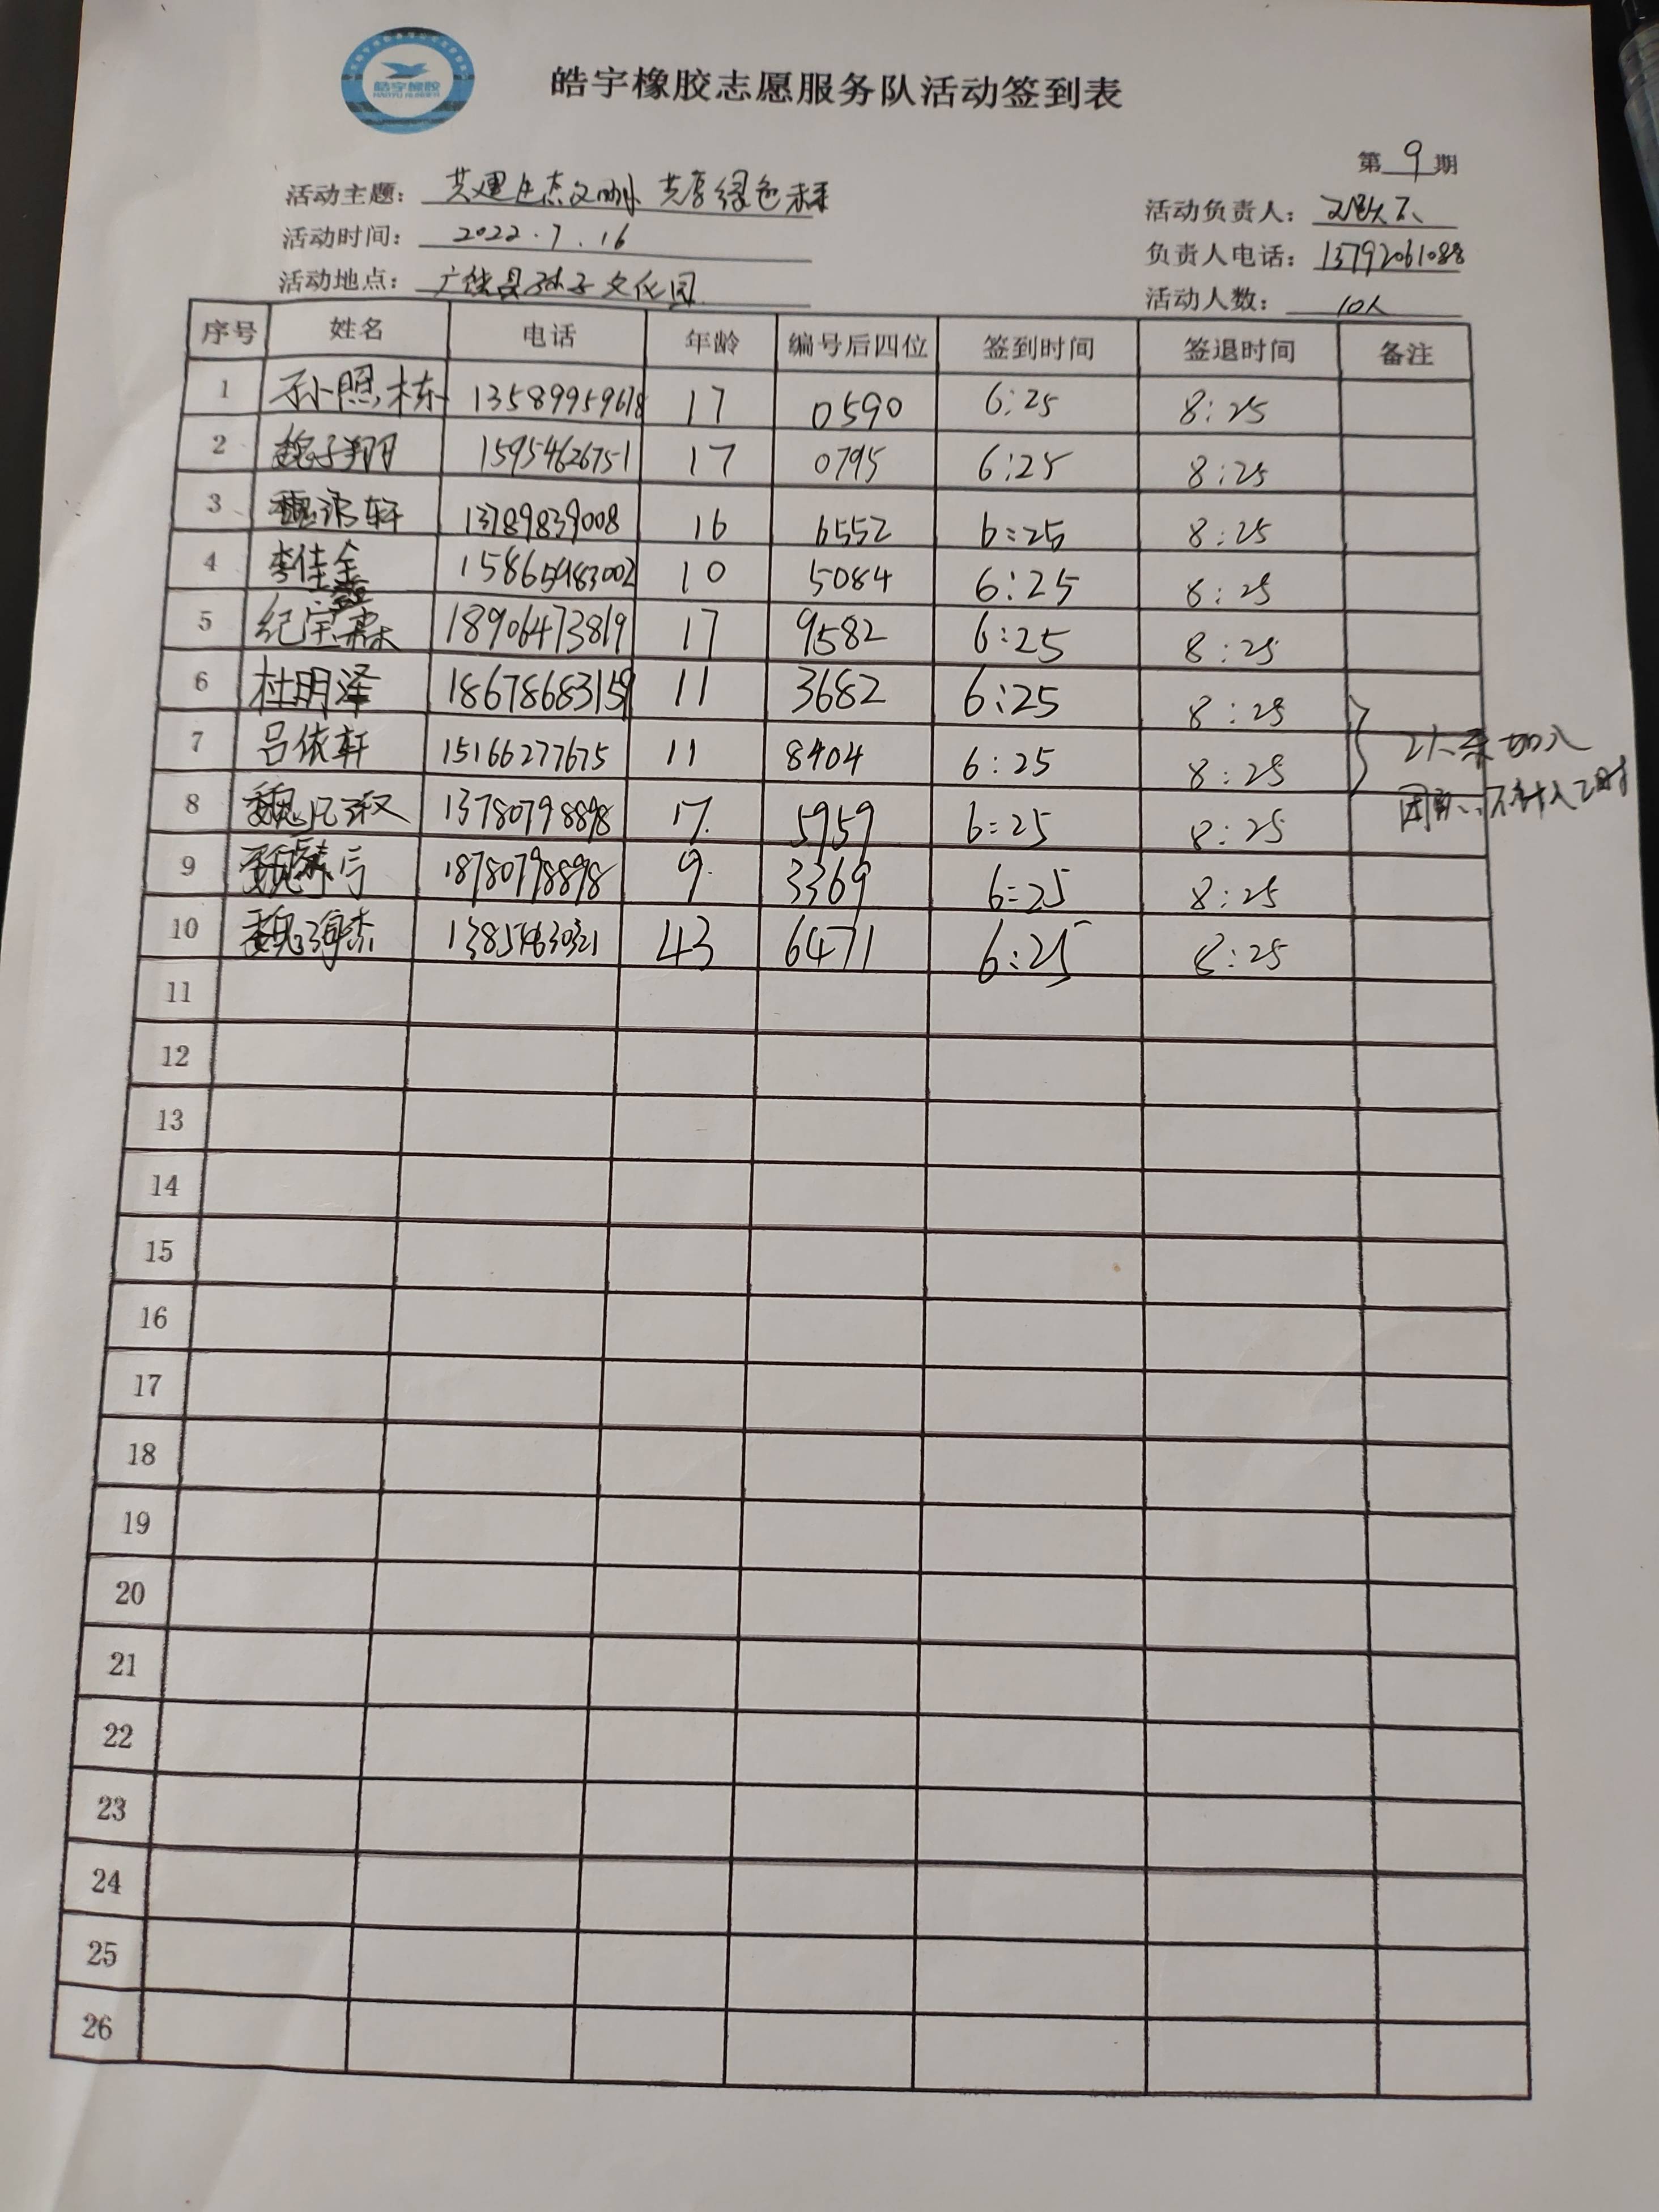 皓宇橡胶
皓宇橡胶志愿服务队活动签到表
第 9 期
活动主题： 共建生态文明 共享绿色未来
活动负责人：
活动时间： 2022.7.16
负责人电话： 13792061088
活动地点： 广饶县孙子文化园
活动人数： 10人
序号 姓名 电话 年龄 编号后四位 签到时间 签退时间 备注
1 孙照栋 13589959618 17 0590 6:25 8:25
2 魏子翔 15954626751 17 0795 6:25 8:25
3 魏 轩 13789839008 16 6552 6:25 8:25
4 李佳全 10 5084 6:25 8:25
5 纪宝霖 18906473819 17 9582 6:25 8:25
6 杜明泽 18678683159 11 3682 6:25 8:25
7 吕依轩 15166277675 11 8404 6:25 8:25 2人未加入
团队,不计入工时
8 魏 13780798898 17 5959 6:25 8:25
9 魏 18780798898 9 3369 6:25 8:25
10 魏海杰 13854630321 43 6471 6:25 8:25
11
12
13
14
15
16
17
18
19
20
21
22
23
24
25
26